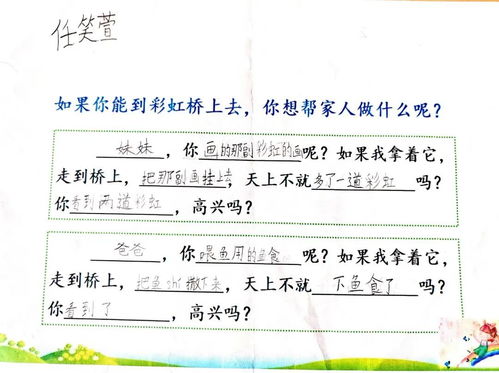 任笑萱
如果你能到彩虹桥上去，你想帮家人做什么呢？
妹妹，你画的那副彩虹的画呢？如果我拿着它，
走到桥上，把那副画挂上去，天上不就多了一道彩虹吗？
你看到两道彩虹，高兴吗？
爸爸，你喂鱼用的鱼食呢？如果我拿着它，
走到桥上，把鱼shí撒下来，天上不就下鱼食了吗？
你看到了，高兴吗？